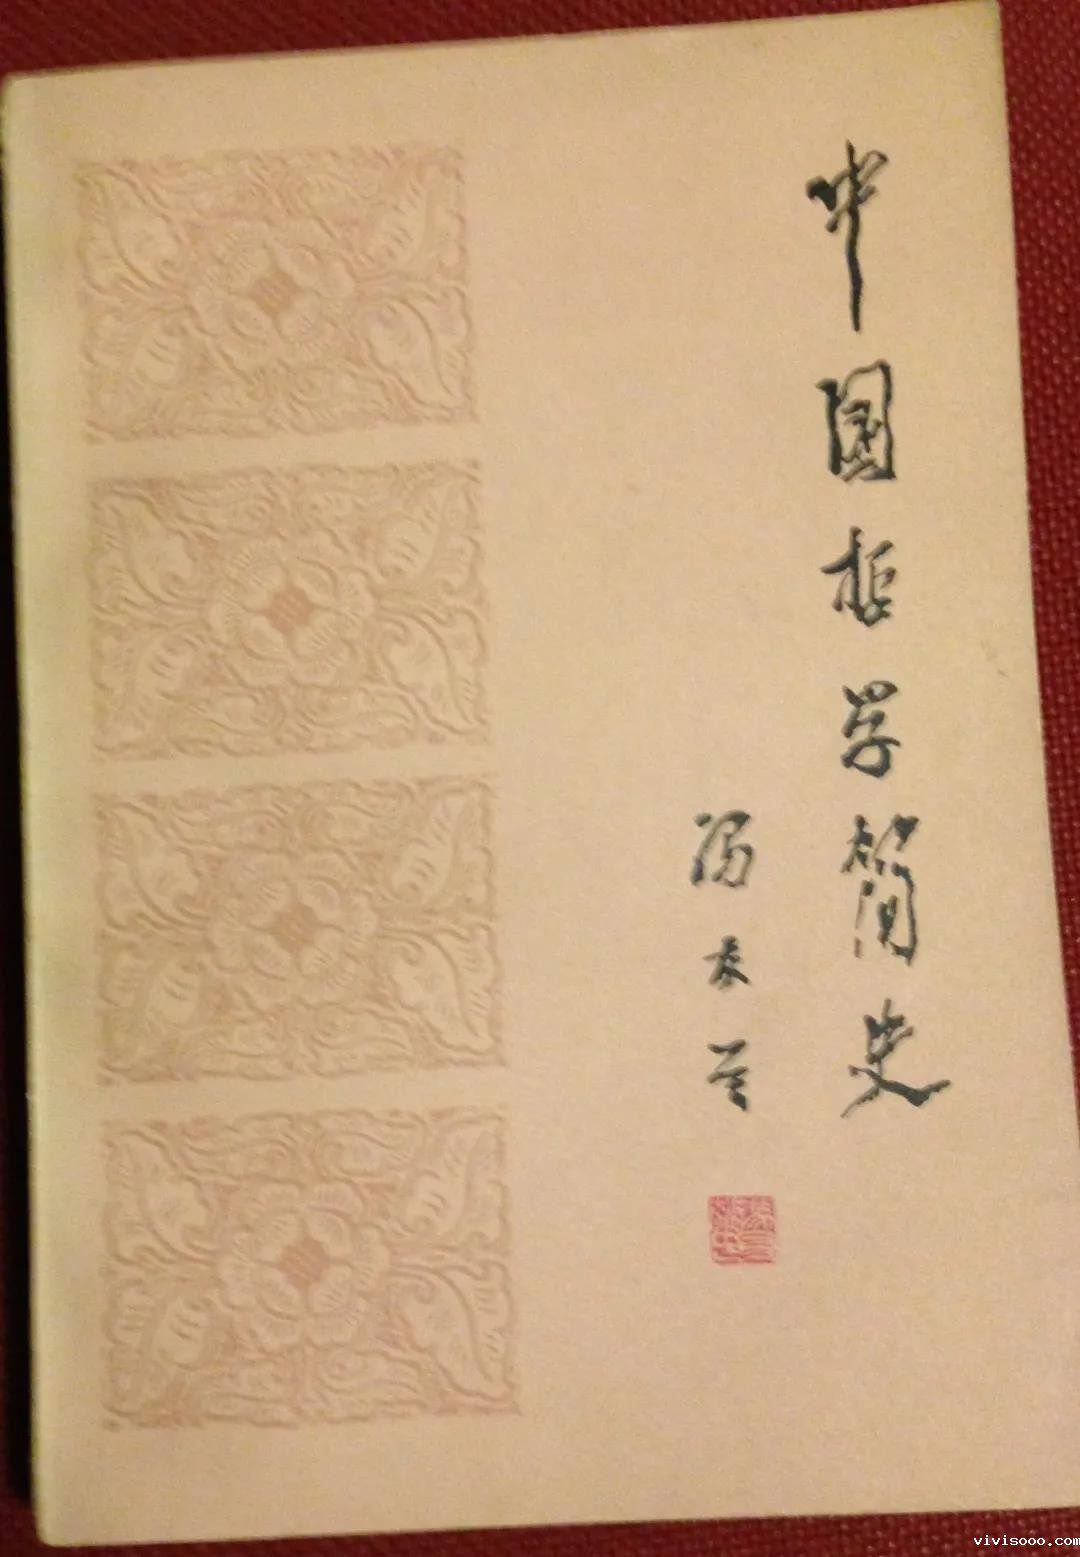 中国哲学简史
冯友兰
vivisooo.com